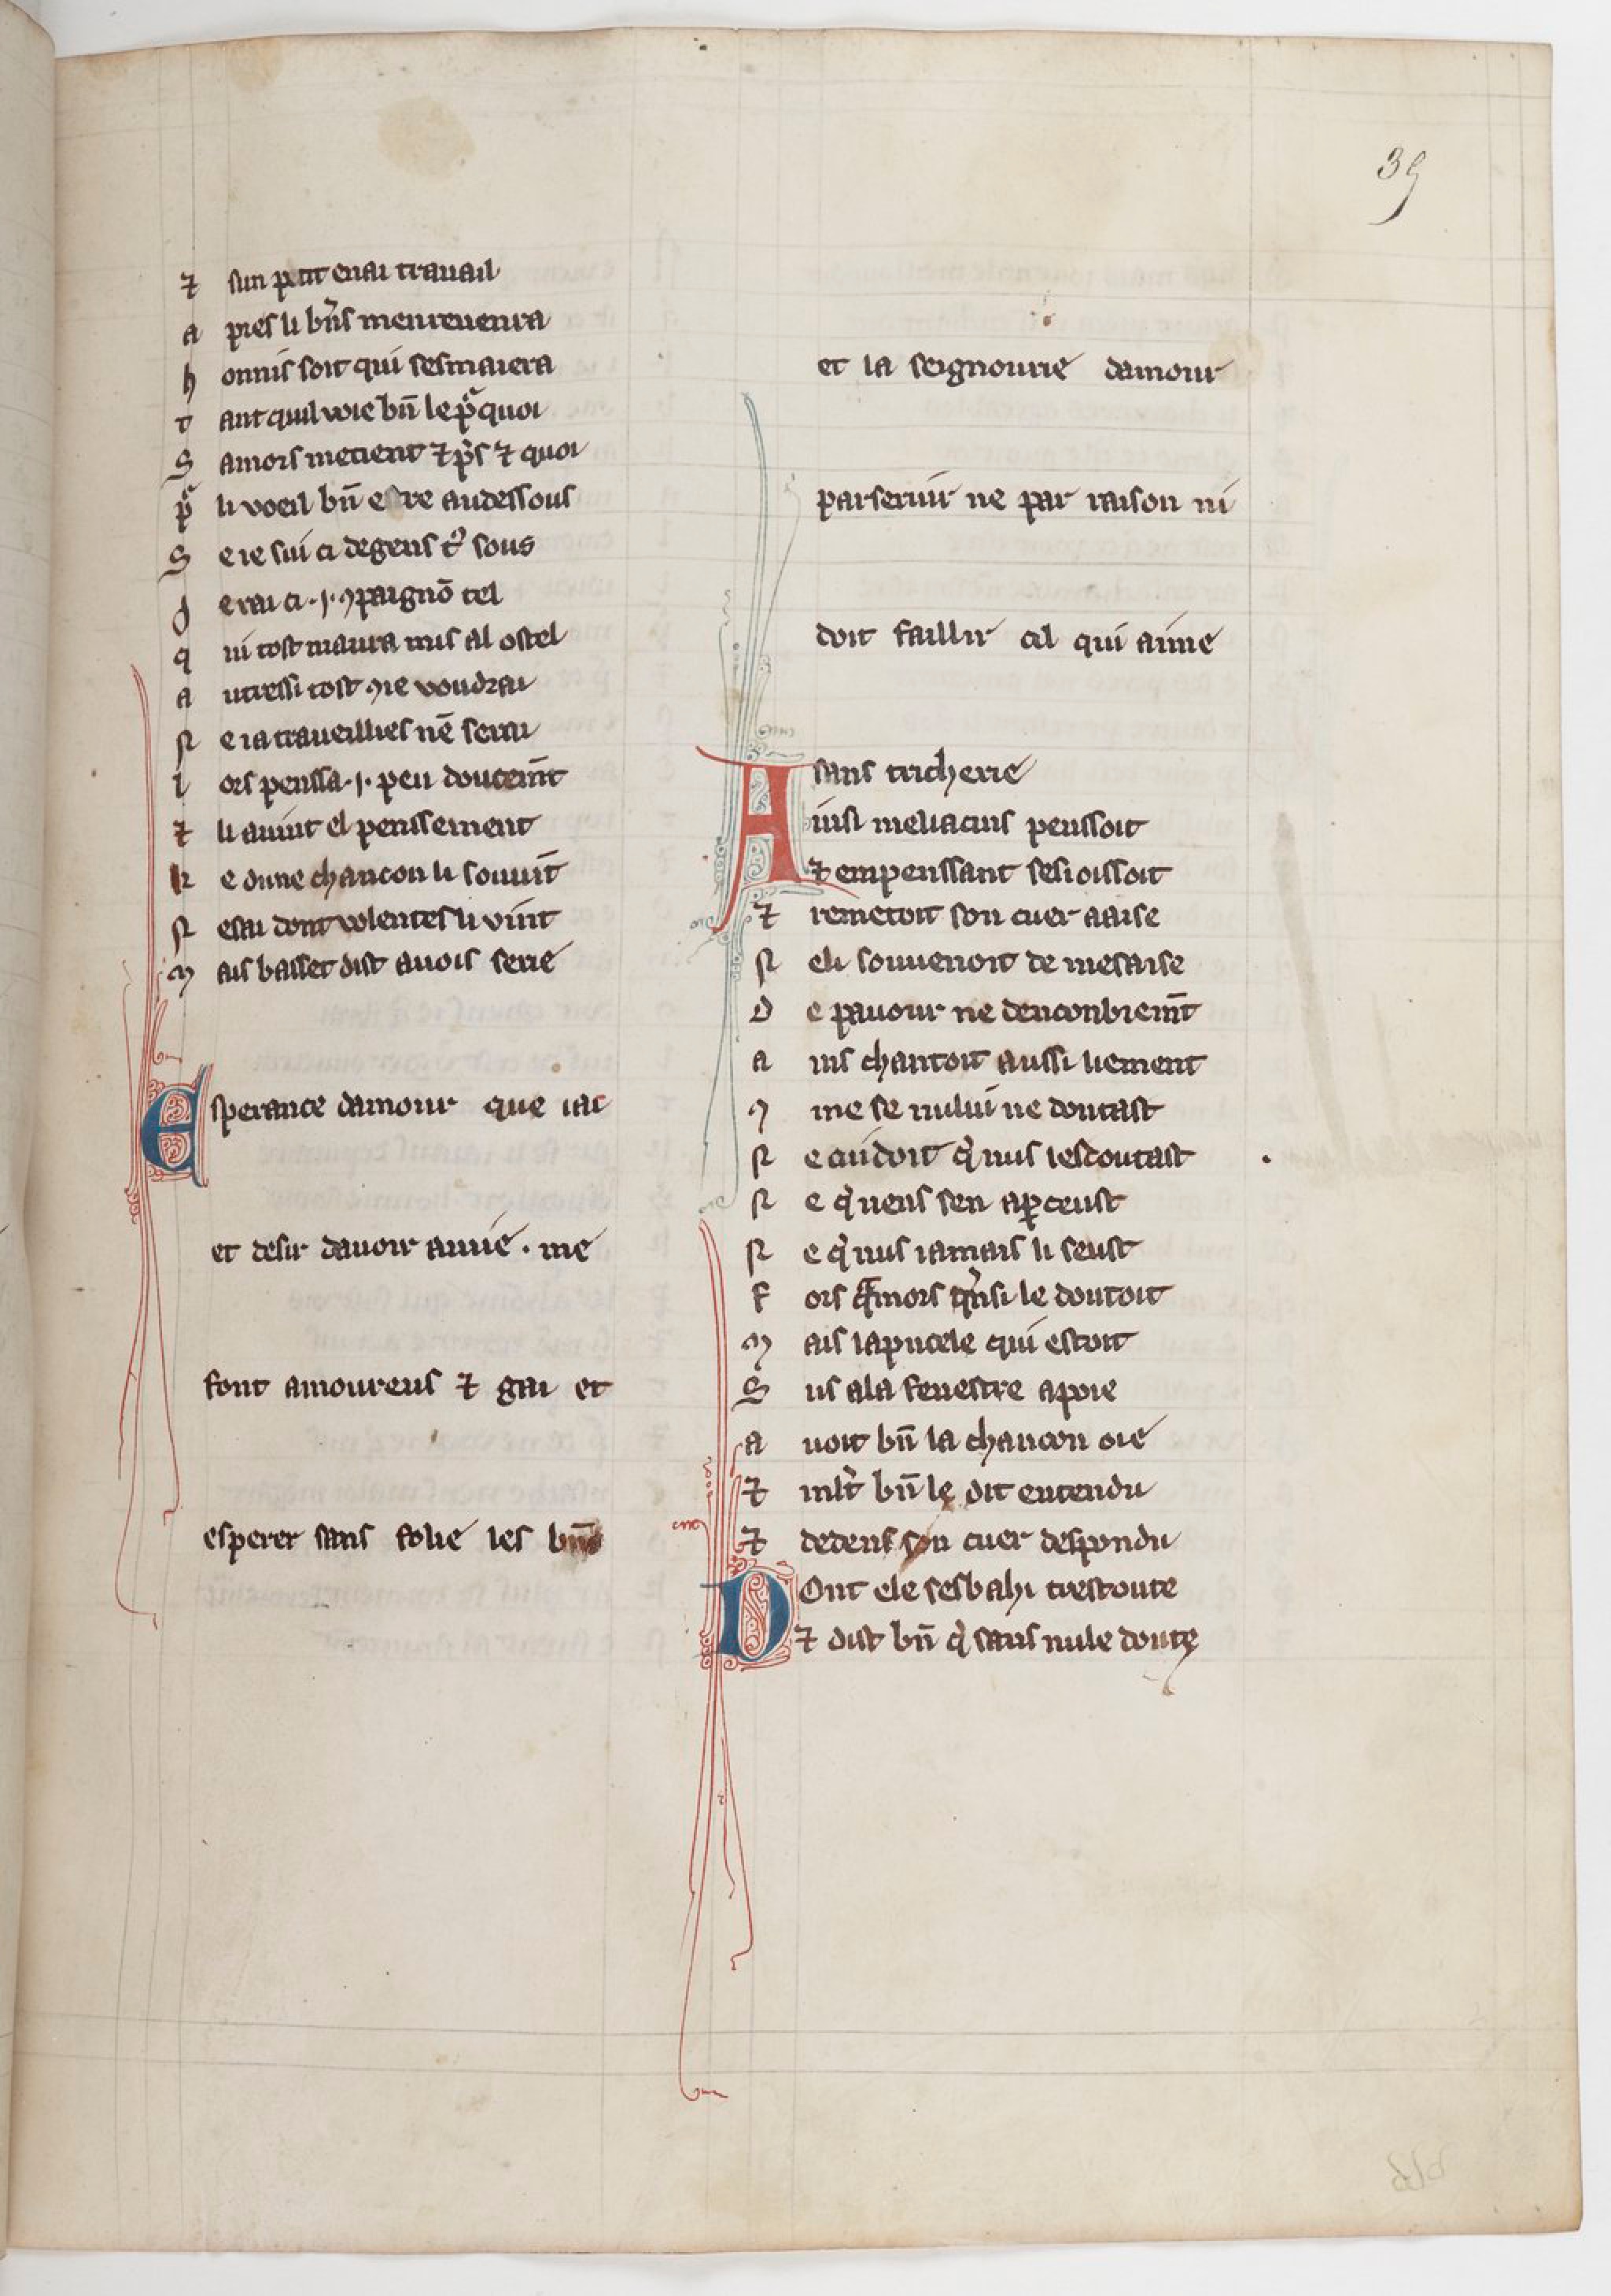 39
⁊ sun petit enai trauail
a pres li bn̄s menreuenra
h onnis soit qui sesmaiera
t ant quil voie bn̄ le pͣquoi
S amors metient ⁊ pͥs ⁊ quoi
pͣ li voeil bn̄ estre audessous
S e ie sui ci degens sous
d erai ci .j. ꝯpaignō tel
q ui tost maura mis al ostel
a utressi tost ꝯ ie voudrai
R e ia traueillies nē serai
l ors penssa .j. peu doucem̄t
⁊ li auint el penssement
k e dune chancon li souuīt
R esai dont volentes li vīnt
M ais basset dist a vois serie
Esperance damour que iai
et desir dauoir amie . me
font amoureus ⁊ gai et
esperer sans folie les
et la seignourie damour
par seruir ne par raison ni
doit faillir cil qui aime
sans tricherie
Ainsi meliacins penssoit
⁊ empenssant sesioissoit
⁊ remetoit son cuer aaise
N eli souuenoit de mesaise
D e paour ne denconbrem̄t
a ins chantoit aussi liement
ꝯ me se nului ne doutast
N e cuidoit qͥ nus lescoutast
N e qͥ riens sen aꝑceust
N e qͥ nus iamais li seust
F ors qͣmors qͥnsi le doutoit
M ais la pucele qui estoit
S us ala fenestre apoie
a uoit bn̄ la chancon oie
⁊ mlt̄ bn̄ le dit entendu
⁊ dedens son cuer despondu
DOnt ele sesbahi trestoute
⁊ dist bn̄ qͥ sans nule doute